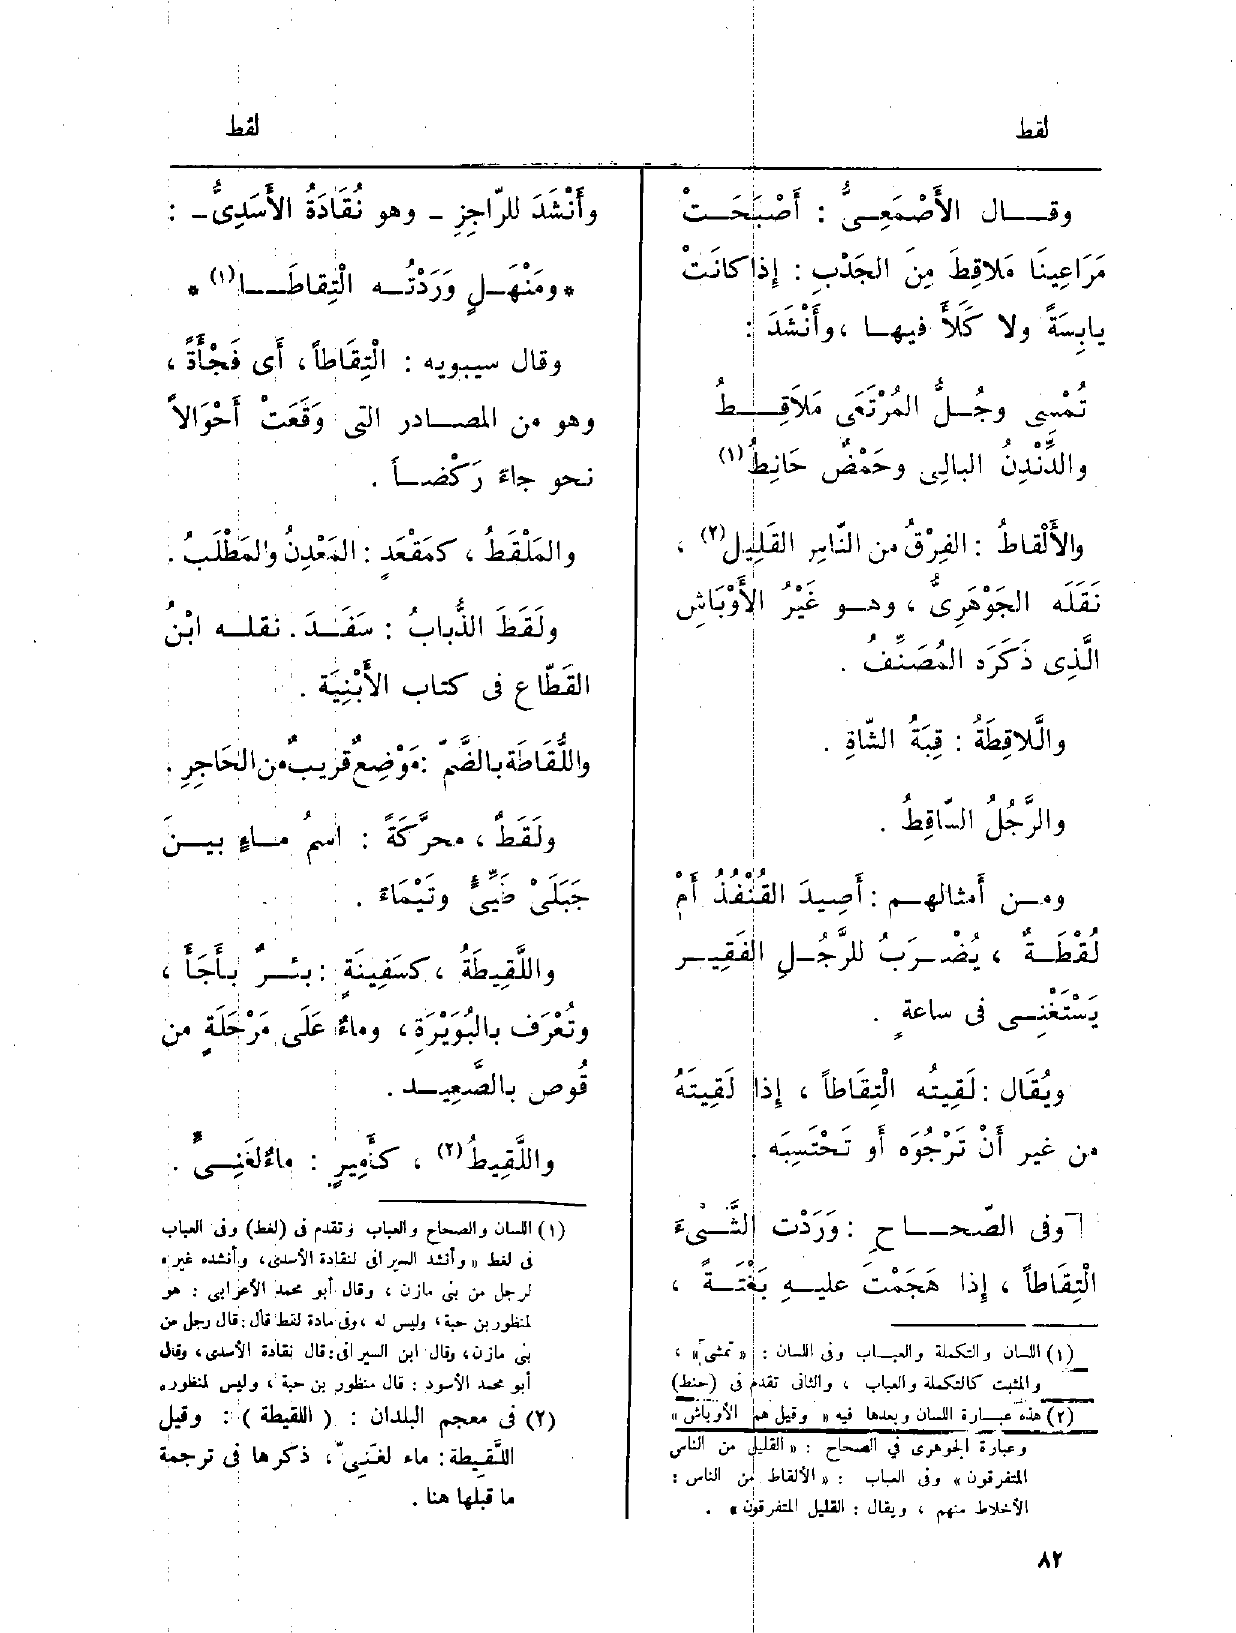 لقط
لقط
وقـــال الأَصْمَعِـىُّ : أَصْبَحَـتْ
مَرَاعِينَا مَلاقِطَ مِنَ الجَدْبِ : إِذا كانَتْ
يابِسَةً ولا كَلَأَ فيهـا ، وأَنْشَدَ :
تُمْسِى وجُـلُّ المُرْتَعَى مَلَاقِـــطُ
والدِّنْدِنُ البالِى وحَمْضٌ حَانِطُ(١)
والأَلْقاطُ : الفِرْقُ من النّاسِ القَلِيلُ(٢) ،
نَقَلَه الجَوْهَرِىُّ ، وهـو غَيْرُ الأَوْبَاشِ
الَّذِى ذَكَرَه المُصَنِّفُ .
والَّلاقِطَةُ : قِبَةُ الشّاةِ .
والرَّجُلُ السّاقِطُ .
ومـن أَمثالهـم : أَصِيدَ القُنْفُذُ أَمْ
لُقْطَـةٌ ، يُضْـرَبُ للرَّجُـلِ الفَقِيـرِ
يَسْتَغْنِـى فى ساعةٍ .
ويُقَال : لَقِيتُه الْتِقَاطاً ، إِذا لَقِيتَهُ
من غير أَنْ تَرْجُوَه أَو تَحْتَسِبَه .
وفى الصّحـــاحِ : وَرَدْت الشَّـىْءَ
الْتِقَاطاً ، إِذا هَجَمْتَ عليـهِ بَغْتَـةً ،
(١) اللسان والتكملة والعبـاب وفى اللسان : « تمشى » ،
والمثبت كالتكملة والعباب ، والثانى تقدم فى (حنط)
(٢) هذه عبـارة اللسان وبعدها فيه « وقيل هم الأوباش »
وعبارة الجوهرى فى الصحاح : « القليل من الناس
المتفرقون » وفى العباب : « الألقاط من الناس :
الأخلاط منهم ، ويقال : القليل المتفرقون » .
وأَنْشَدَ للرّاجِزِ - وهو نُقَادَةُ الأَسَدِىُّ- :
* ومَنْهَـلٍ وَرَدْتُـه الْتِقاطَــا(١) *
وقال سيبويه : الْتِقَاطاً ، أَى فَجْأَةً ،
وهو من المصـادر التى وَقَعَتْ أَحْوَالاً
نحو جاءَ رَكْضـاً .
والمَلْقَطُ ، كمَقْعَدٍ : المَعْدِنُ والمَطْلَبُ .
ولَقَطَ الذُّبابُ : سَفَـدَ . نقلـه ابْنُ
القَطّاع فى كتاب الأَبْنِيَة .
واللُّقَاطَة بالضَّمّ : مَوْضِعٌ قريبٌ من الحَاجِرِ .
ولَقَطٌ ، محرَّكَةً : اسمُ مـاءٍ بيـنَ
جَبَلَىْ طَيِّئٍ وتَيْمَاءَ .
واللَّقِيطَةُ ، كسَفِينَةٍ : بئـرٌ بأَجَأَ ،
وتُعْرَف بالبُوَيْرَةِ ، وماءٌ عَلَى مَرْحَلَةٍ من
قُوص بالصَّعِيـد .
واللَّقِيطُ(٢) ، كأَمِيرٍ : ماءٌ لغَنِـىٍّ .
(١) اللسان والصحاح والعباب وتقدم فى (لغط) وفى العباب
فى لغط « وأنشد السيرافى لنقادة الأسدى، وأنشده غيره
لرجل من بنى مازن ، وقال أبو محمد الأعرابى : هو
لمنظور بن حبة، وليس له ، وفى مادة لقط قال : قال رجل من
بنى مازن، وقال ابن السيرافى : قال نقادة الأسدى، وقال
أبو محمد الأسود : قال منظور بن حبة ، وليس لمنظور .
(٢) فى معجم البلدان : ( اللقيطة ) : وقيل
اللَّقيطة : ماء لغَنِىّ ، ذكرها فى ترجمة
ما قبلها هنا .
٨٢